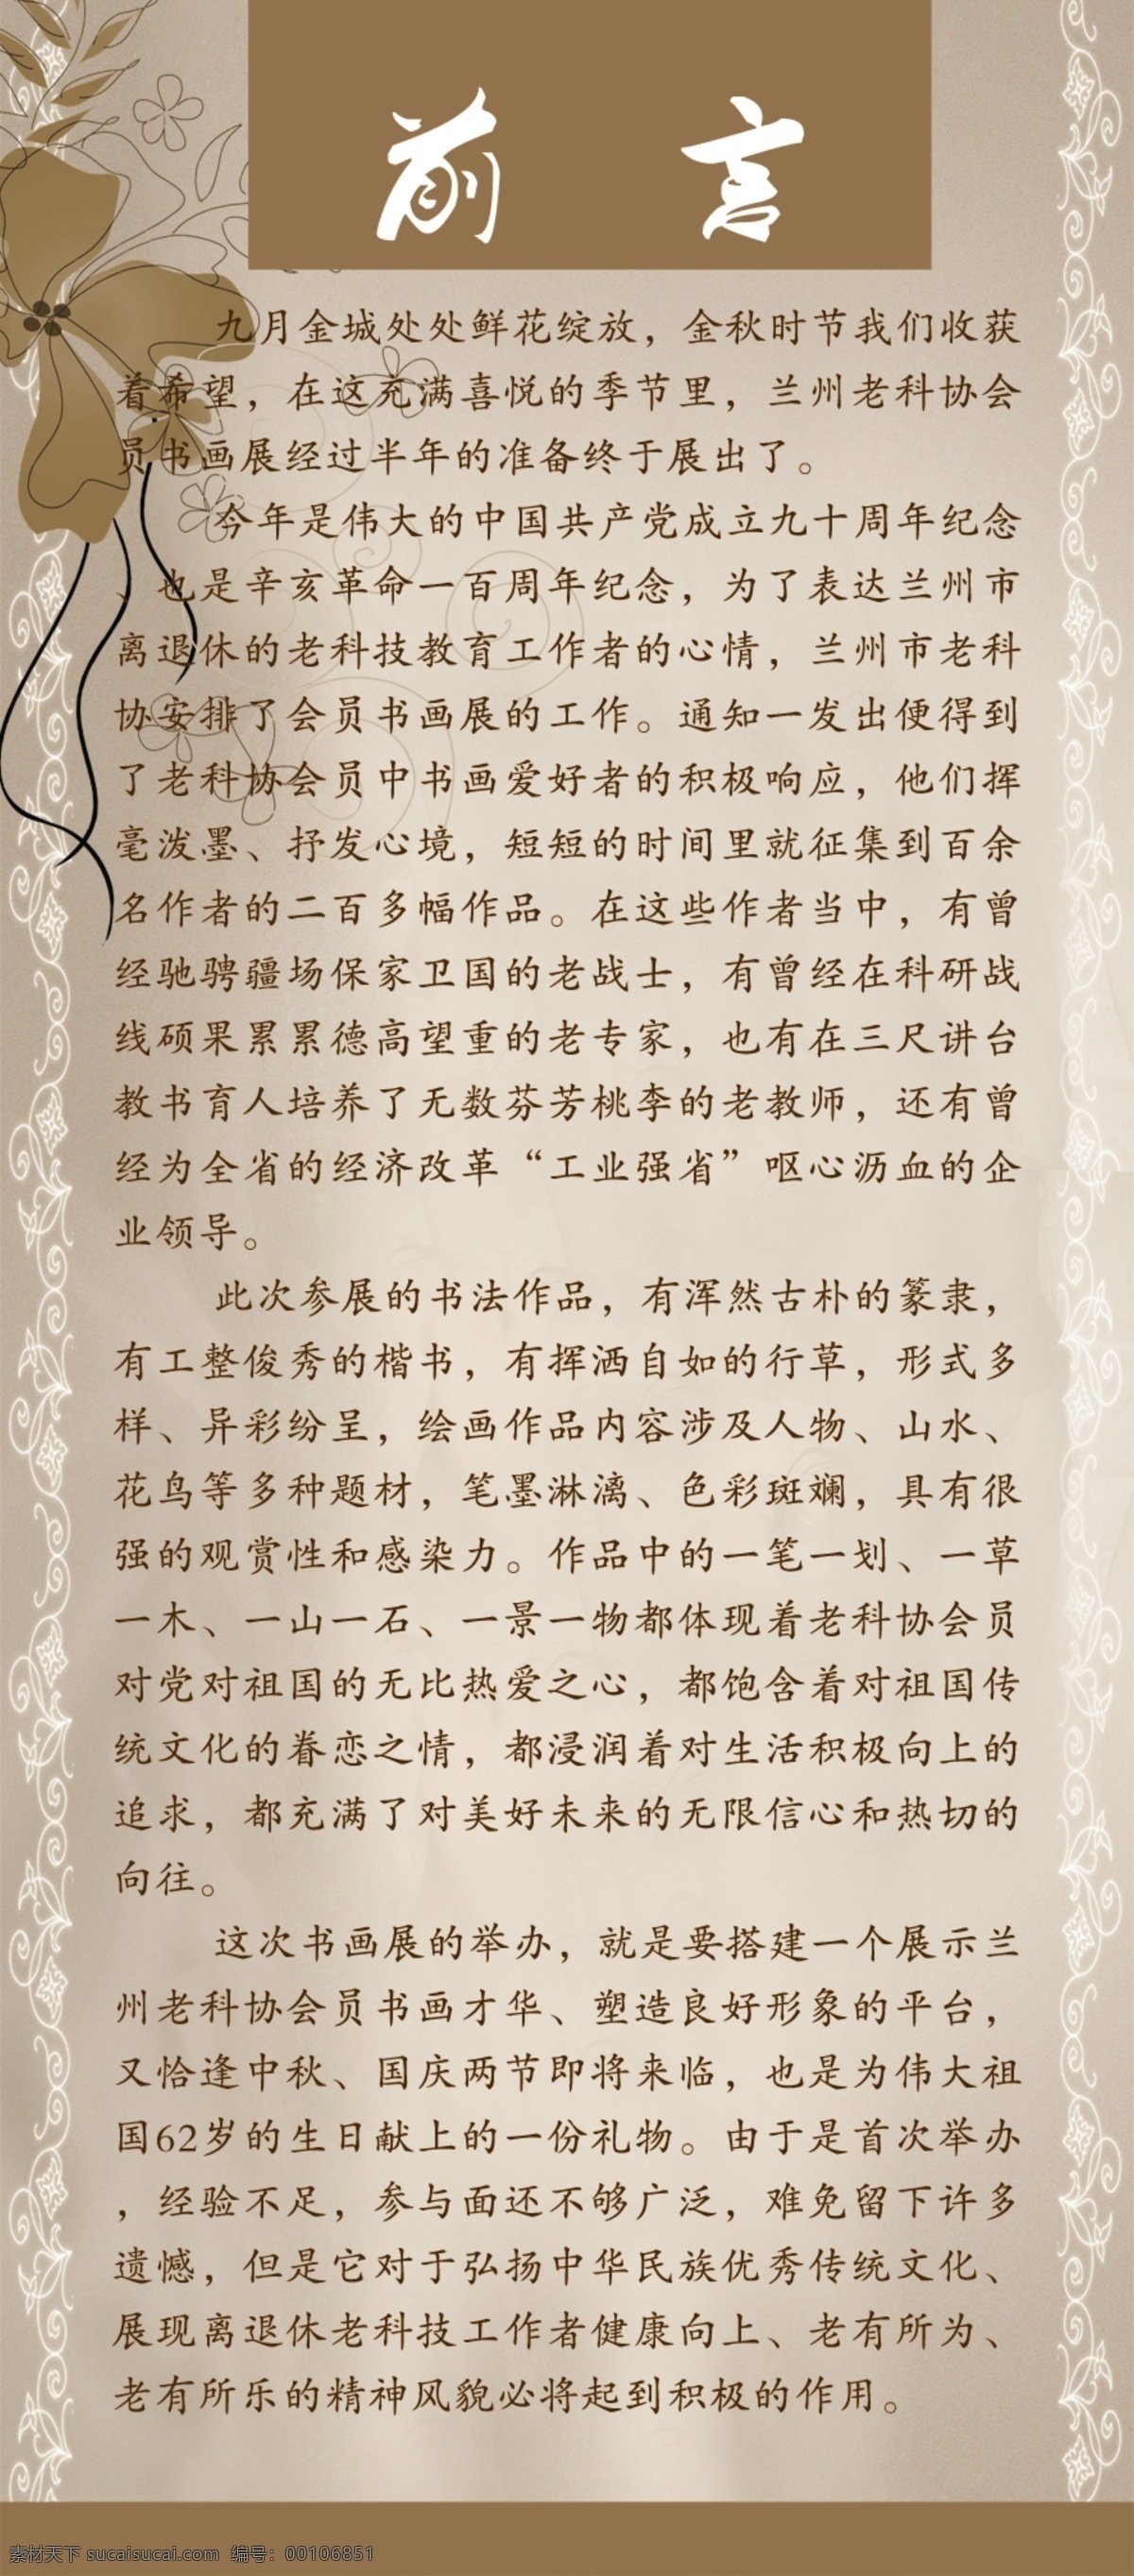 前 言
九月金城处处鲜花绽放，金秋时节我们收获
着希望，在这充满喜悦的季节里，兰州老科协会
员书画展经过半年的准备终于展出了。
今年是伟大的中国共产党成立九十周年纪念
、也是辛亥革命一百周年纪念，为了表达兰州市
离退休的老科技教育工作者的心情，兰州市老科
协安排了会员书画展的工作。通知一发出便得到
了老科协会员中书画爱好者的积极响应，他们挥
毫泼墨、抒发心境，短短的时间里就征集到百余
名作者的二百多幅作品。在这些作者当中，有曾
经驰骋疆场保家卫国的老战士，有曾经在科研战
线硕果累累德高望重的老专家，也有在三尺讲台
教书育人培养了无数芬芳桃李的老教师，还有曾
经为全省的经济改革“工业强省”呕心沥血的企
业领导。
此次参展的书法作品，有浑然古朴的篆隶，
有工整俊秀的楷书，有挥洒自如的行草，形式多
样、异彩纷呈，绘画作品内容涉及人物、山水、
花鸟等多种题材，笔墨淋漓、色彩斑斓，具有很
强的观赏性和感染力。作品中的一笔一划、一草
一木、一山一石、一景一物都体现着老科协会员
对党对祖国的无比热爱之心，都饱含着对祖国传
统文化的眷恋之情，都浸润着对生活积极向上的
追求，都充满了对美好未来的无限信心和热切的
向往。
这次书画展的举办，就是要搭建一个展示兰
州老科协会员书画才华、塑造良好形象的平台，
又恰逢中秋、国庆两节即将来临，也是为伟大祖
国62岁的生日献上的一份礼物。由于是首次举办
，经验不足，参与面还不够广泛，难免留下许多
遗憾，但是它对于弘扬中华民族优秀传统文化、
展现离退休老科技工作者健康向上、老有所为、
老有所乐的精神风貌必将起到积极的作用。
素材天下 sucaisucai.com 编号：00106851